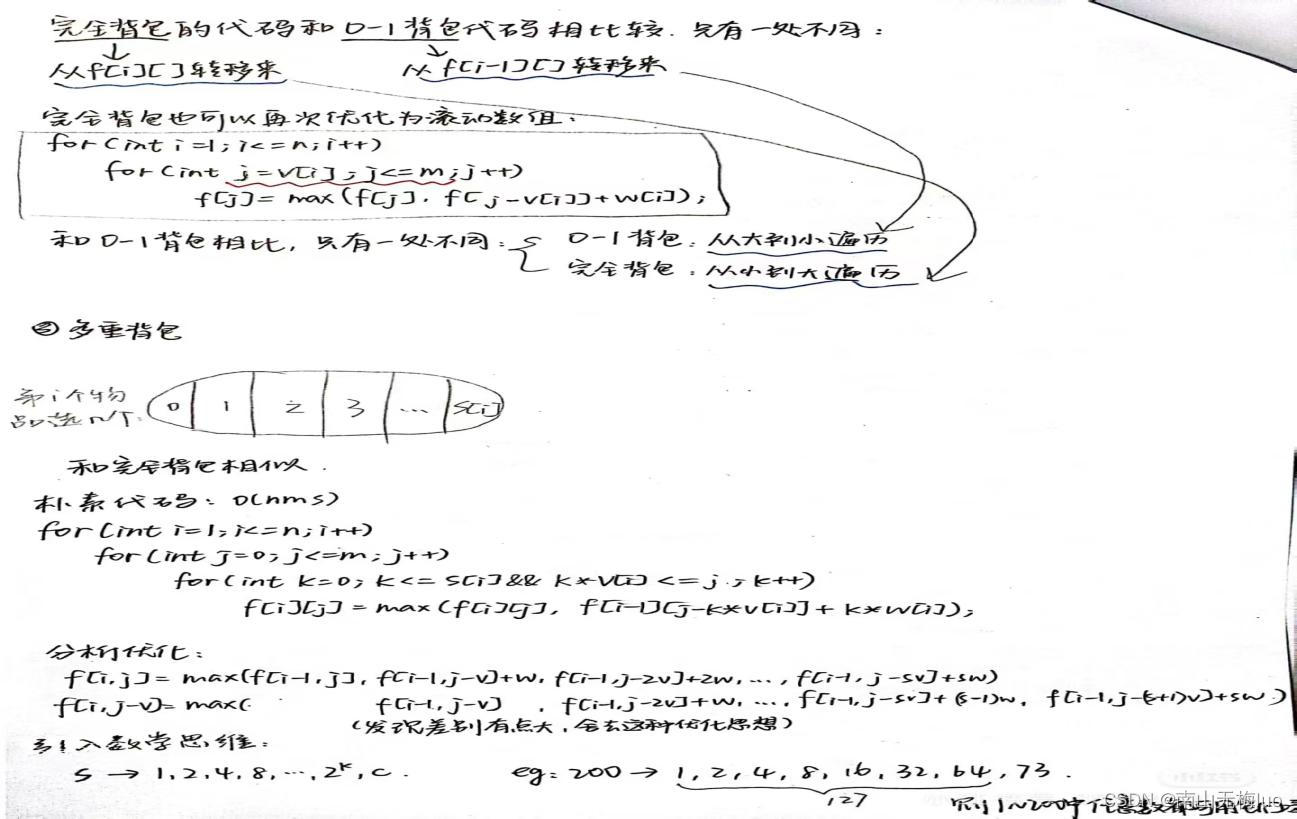 完全背包的代码和0-1背包代码相比较.只有一处不同:
从f[i][]转移来 从f[i-1][]转移来
完全背包也可以再次优化为滚动数组:
for(int i=1;i<=n;i++)
for(int j=v[i];j<=m;j++)
f[j]=max(f[j],f[j-v[i]]+w[i]);
和0-1背包相比,只有一处不同: 0-1背包:从大到小遍历
完全背包:从小到大遍历
③多重背包
第i个物
品选n个: 0 1 2 3 ... s[i]
和完全背包相似.
朴素代码:O(nms)
for(int i=1;i<=n;i++)
for(int j=0;j<=m;j++)
for(int k=0;k<=s[i]&&k*v[i]<=j;k++)
f[i][j]=max(f[i][j],f[i-1][j-k*v[i]]+k*w[i]);
分析优化:
f[i,j]=max(f[i-1,j],f[i-1,j-v]+w,f[i-1,j-2v]+2w,...,f[i-1,j-sv]+sw)
f[i,j-v]=max( f[i-1,j-v],f[i-1,j-2v]+w,...,f[i-1,j-sv]+(s-1)w,f[i-1,j-(s+1)v]+sw)
(发现差别有点大,舍去这种优化思想)
引入数学思维:
s→1,2,4,8,...,2^k,c. eg:200→1,2,4,8,16,32,64,73.
127
则1~200中任意数都可用
CSDN @南山无梅luo